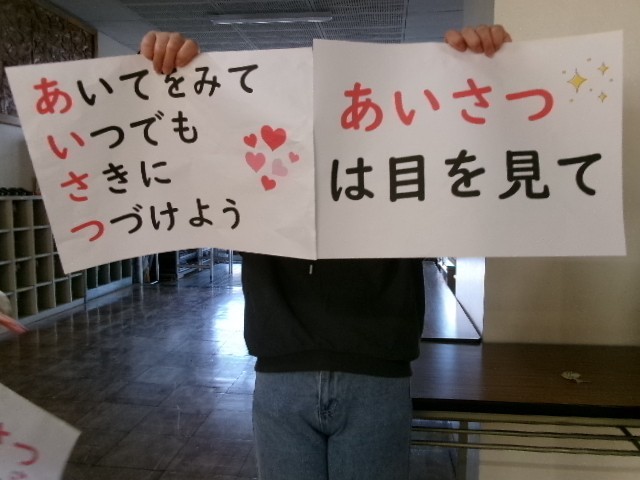 あいてをみて
いつでも
さきに
つづけよう
あいさつ
は目を見て
さつ